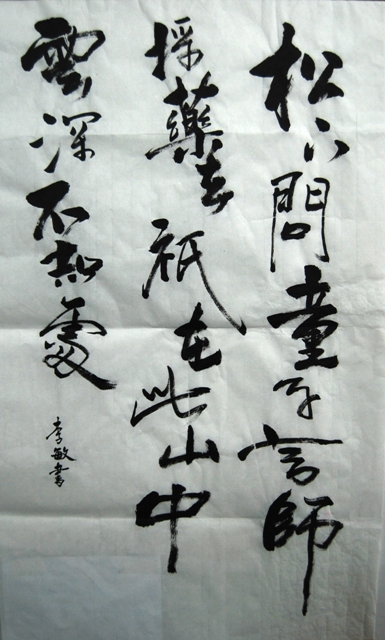 松下問童子言師
採藥去祇在此山中
雲深不知處
李敏書